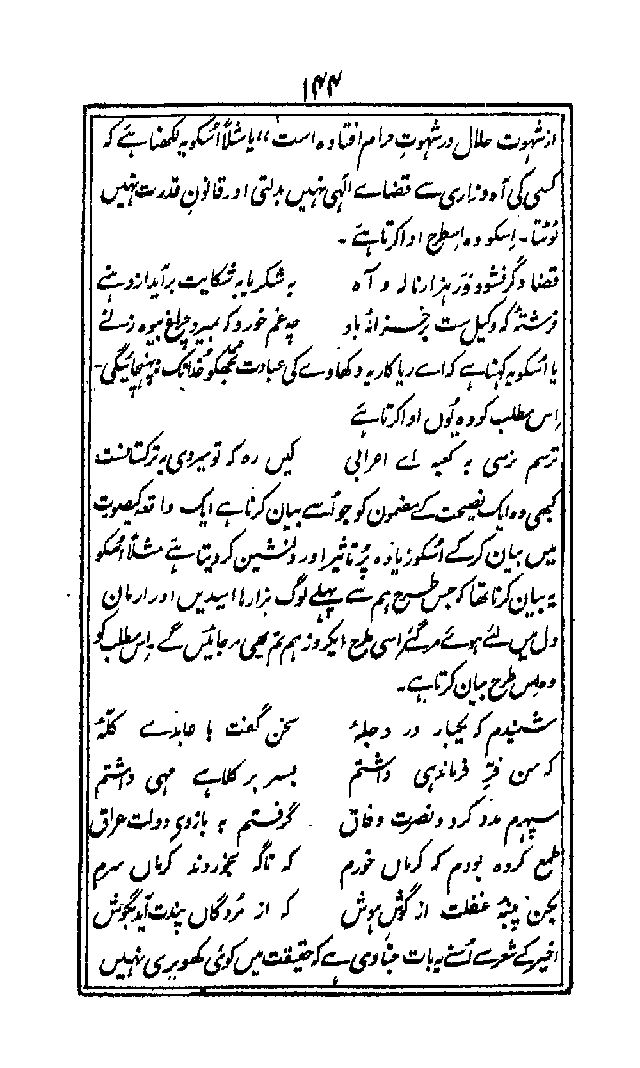 ۱۴۴
از شہوت حلال در شہوتِ حرام افتادہ است،، یا مثلاً اُسکو یہ لکھنا ہے کہ
کسی کی آہ و زاری سے قضاے الٰہی نہیں بدلتی اور قانونِ قدرت نہیں
ٹوٹتا۔ اِسکو وہ اِسطرح ادا کرتا ہے۔
قضا دگر نشود ور ہزار نالہ و آہ بہ شکر یا بہ شکایت برآید از دہنے
فرشتۂ کہ وکیل ست بر خزانۂ باد چہ غم خورد کہ بمیرد چراغِ بیوہ زنے
یا اُسکو یہ کہنا ہے کہ اے ریاکار یہ دکھاوے کی عبادت تجھکو خدا تک نہ پہنچائیگی۔
اِس مطلب کو وہ یُوں ادا کرتا ہے
ترسم نرسی بہ کعبہ اے اعرابی کیں رہ کہ تو میروی بہ ترکستانست
کبھی وہ ایک نصیحت کے مضمون کو جو اُسے بیان کرنا ہے ایک واقعہ کیصورت
میں بیان کر کے اُسکو زیادہ پُر تاثیر اور دلنشین کر دیتا ہے مثلاً اُسکو
یہ بیان کرنا تھا کہ جس طرح ہم سے پہلے لوگ ہزارہا امیدیں اور ارمان
دل میں لئے ہوئے مر گئے اسی طرح ایکروز ہم تم بھی مر جائیں گے۔ اِس مطلب کو
وہ اِس طرح بیان کرتا ہے۔
شنیدم کہ یکبار در دجلۂ سخن گفت با عابدے کلّۂ
کہ من فرِّ فرماندہی داشتم بسر بر کلاہے مہی داشتم
سپہرم مدد کرد و نصرت وفاق گرفتم بہ بازوی دولت عراق
طمع کردہ بودم کہ کرماں خورم کہ ناگہ بخوردند کرماں سرم
بکن پنبۂ غفلت از گوشِ ہوش کہ از مردگاں پندت آید بگوش
اخیر کے شعر سے اُسنے یہ بات جتا دی ہے کہ حقیقت میں کوئی کھوپری نہیں